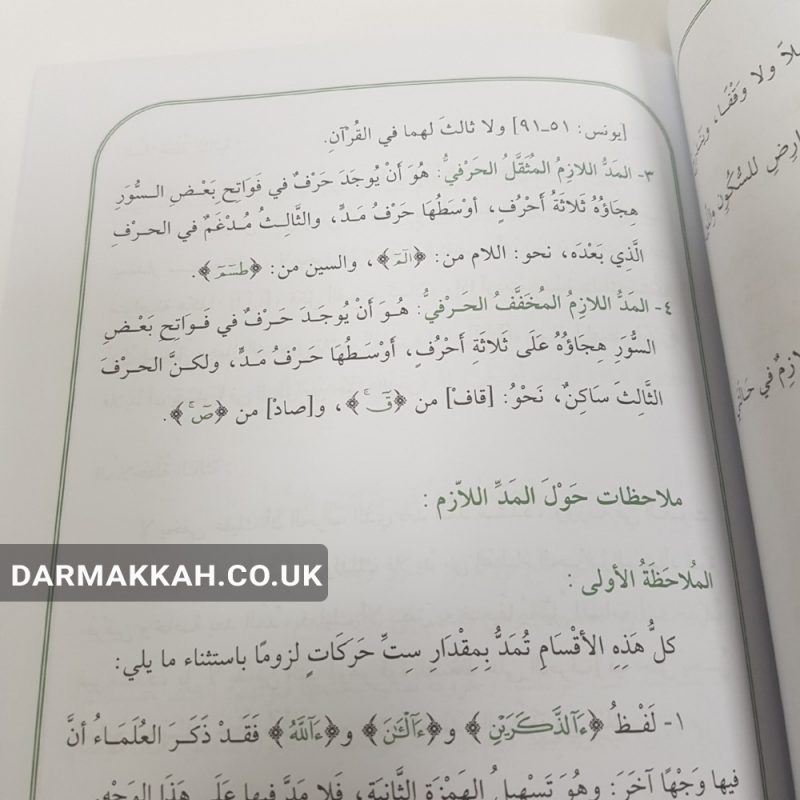 [يونس: ٥١ـ٩١] ولا ثالثَ لهما في القُرْآنِ.
٣- المَدُّ اللازِمُ المُثَقَّلُ الحَرْفيُّ: هُوَ أَنْ يُوجَدَ حَرْفٌ في فَوَاتِحِ بَعْضِ السُّوَرِ
هِجَاؤُهُ ثَلاثَةُ أَحْرُفٍ، أَوْسَطُهَا حَرْفُ مَدٍّ، والثَّالِثُ مُدْغَمٌ في الحرْفِ
الَّذِي بَعْدَه، نحو: اللام من: ﴿الٓمٓ﴾، والسين من: ﴿طسٓمٓ﴾.
٤- المَدُّ اللازِمُ المُخَفَّفُ الحَرْفيُّ: هُوَ أَنْ يُوجَدَ حَرْفٌ في فَوَاتِحِ بَعْضِ
السُّوَرِ هِجَاؤُهُ عَلَى ثَلاثَةِ أَحْرُفٍ، أَوْسَطُهَا حَرْفُ مَدٍّ، ولكنَّ الحرْفَ
الثَّالِثَ سَاكِنٌ، نَحْوُ: [قافْ] من ﴿قٓۚ﴾، و[صادْ] من ﴿صٓۚ﴾.
ملاحظات حَوْلَ المَدِّ اللاَّزِم :
DARMAKKAH.CO.UK
المُلاحَظَةُ الأولى :
كلُّ هَذِهِ الأقْسَامِ تُمَدُّ بِمِقْدَارِ سِتِّ حَرَكَاتٍ لزومًا باستثناء ما يلي:
١- لَفْظُ ﴿ءَآلذَّكَرَيْنِ﴾ و﴿ءَآلْـَٰٔنَ﴾ و﴿ءَآللَّهُ﴾ فَقَدْ ذَكَرَ العُلَمَاءُ أنَّ
فيها وَجْهًا آخَرَ: وهُوَ تَسْهِيلُ الهَمْزَةِ الثَّانِيَةِ، فَلا مَدَّ فيها عَلَى هَذَا الوَجْهِ.